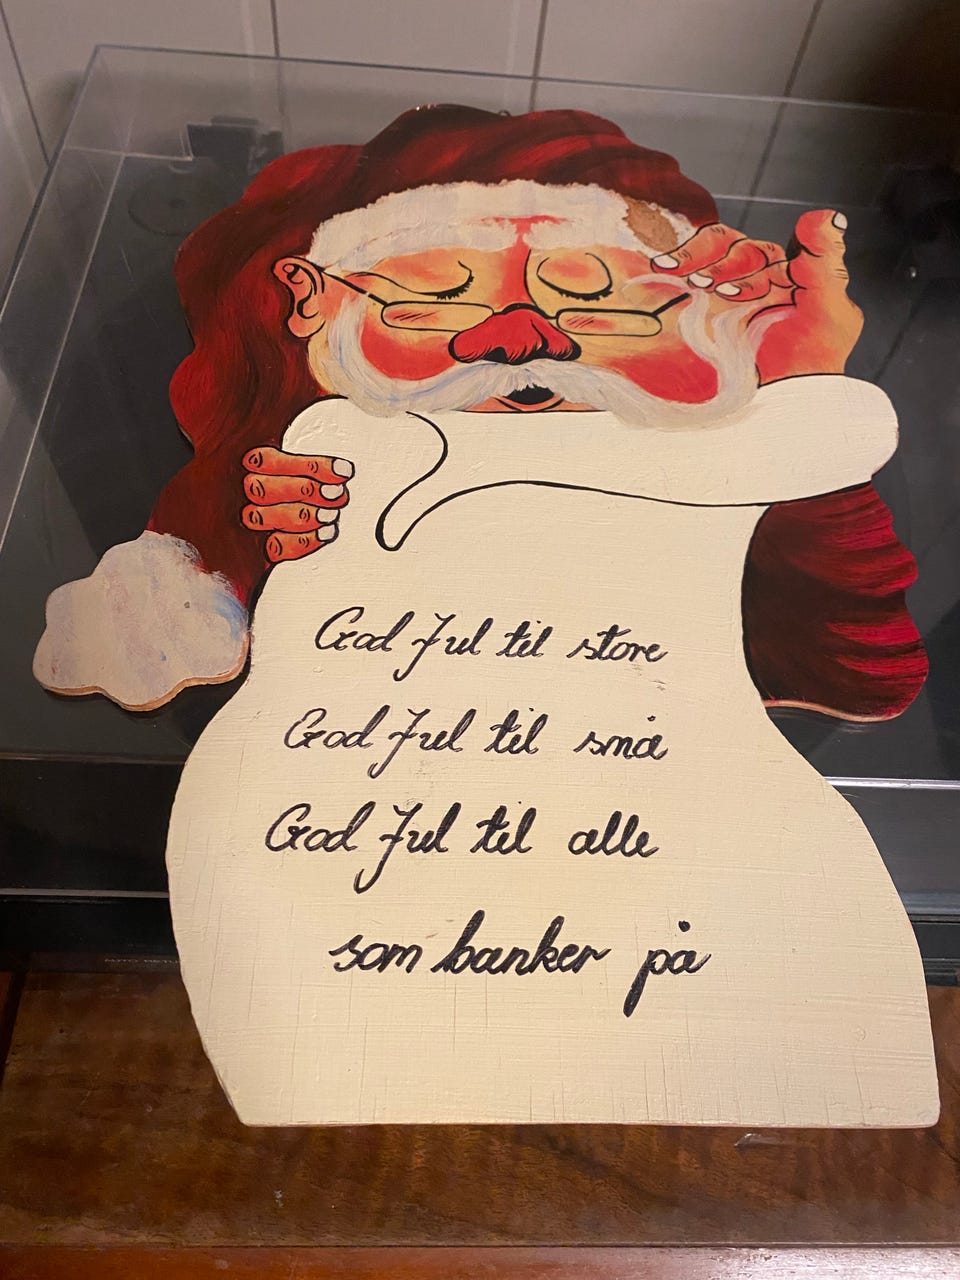 God Jul til store
God Jul til små
God Jul til alle
som banker på